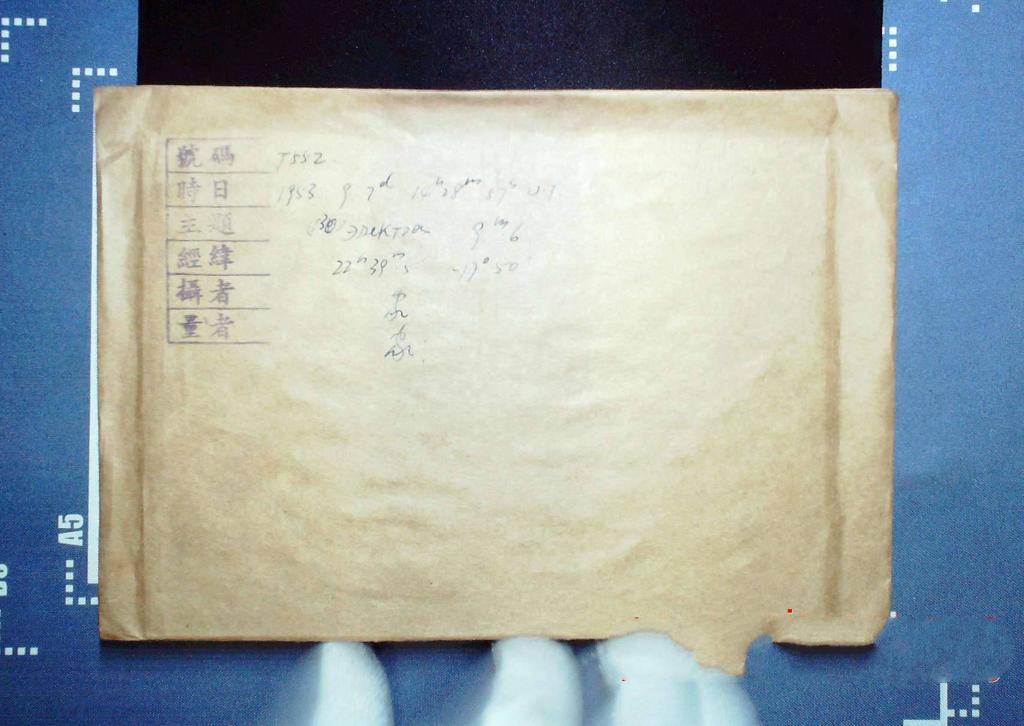 號碼 T552
時日 1953 9. 7ᵈ 14ʰ28ᵐ 57ˢ U.T
主題 (130) ЭлеKTра 9ᵐ6
經緯 22ʰ39ᵐ.5 -17°50'
攝者
量者
A5